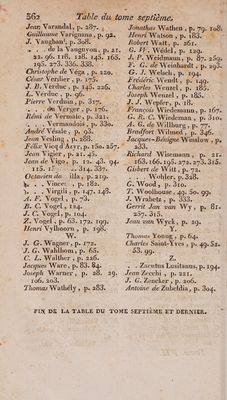 562 Table du tome septième.
Jean Varandal, p. 287.
Guillaume Varignana, p. 92.
J. Vaughan, p. 308.
. . . de la Vauguyon, p. 21.
22. 96. 118. 128. 145. 165.
195. 273. 336. 338.
Christophe de Véga, p. 220.
César Verdier, p. 175.
J. B. Verduc, p. 145. 226.
L. Verduc, p. 90.
Pierre Verduin, p. 317.
. . . Verger, p. 276.
Rémi de Vermale, p. 321.
. . . Vermandois, p. 330.
André Vésale, p. 93.
Jean Vesling, p. 288.
Félix Vicq d'Azyr, p. 150. 257.
Jean Vigier, p. 21. 43.
Jean de Vigo, p. 19. 43. 94.
115. 314. 337.
Octavien de illa, p. 219.
. . . Vincer, p. 182.
. . . Virgili, p. 147. 148.
A. F. Vogel, p. 73.
B. C. Vogel, 124.
J. C. Vogel, p. 104.
Z. Vogel, p. 63. 172. 199.
Henri Vylhoorn, p. 198.
W.
J. G. Wagner, p. 172.
J. G. Wahlbom, p. 65.
C. L. Walther, p. 226.
Jacques Ware, p. 83. 84.
Joseph Warner, p. 28. 29.
106. 203.
Thomas Wathély, p. 283.
Jonathas Wathen, p. 79. 108.
Henri Watson, p. 183.
Robert Watt, p. 261.
G. W. Wédel, p. 129.
J. P. Weidmann, p. 87. 259.
F. C. de Weinhardt, p. 293.
G. J. Welsch, p. 194.
Frédéric Wendt, p. 149.
Charles Wenzel, p. 185.
Joseph Wenzel, p. 185.
J. J. Wepfer, p. 18.
François Wiedemann, p. 167.
G. R. C. Wiedeman, p. 310.
A. G. de Willburg, p. 77.
Bendfort Wilmed, p. 346.
Jacques-Bénigne Winslow, p.
233.
Richard Wiseman, p. 21.
163. 166. 195. 272. 273. 315.
Gisbert de Witt, p. 72.
. . . Wohler, p. 328.
G. Wood, p. 310. 50.
T. Woolhouse, 49. 50. 99.
J. Wrahetz, p. 333.
Gerrit Jan van Wy, p. 81.
257. 315.
Jean van Wyck, p. 29.
Y.
Thomas Young, p. 64.
Charles Saint-Yves, p. 49. 51.
53. 99.
Z.
. . . Zacutus Lusitanus, p. 194.
Jean Zecchi, p. 221.
J. G. Zeneker, p. 206.
Antoine de Zubeldia, p. 304.
FIN DE LA TABLE DU TOME SEPTIÈME ET DERNIER.